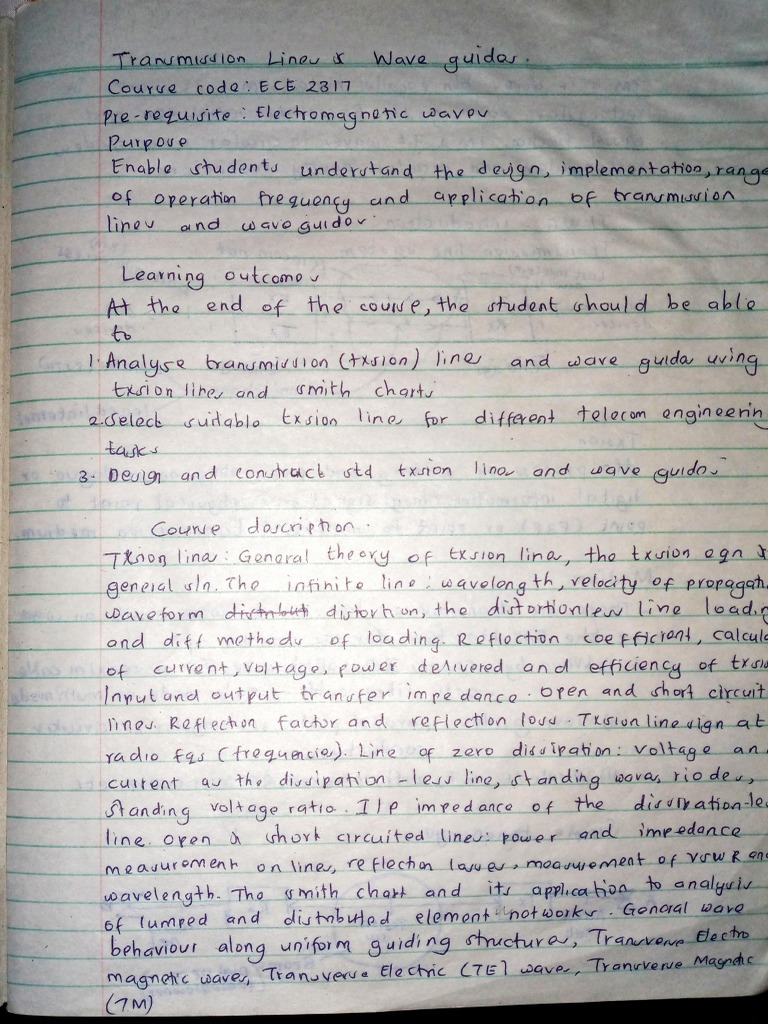 Transmission Lines & Wave guides.
Course code: ECE 2317
Pre-requisite: Electromagnetic waves
Purpose
Enable students understand the design, implementation, range
of operation frequency and application of transmission
lines and waveguides.
Learning outcomes
At the end of the course, the student should be able
to
1. Analyse transmission (txsion) line and wave guide using
txsion lines and smith charts
2. Select suitable txsion line for different telecom engineerin
tasks
3. Design and construct std txsion line and wave guides
Course description.
Txsion line: General theory of txsion line, the txsion eqn &
general sln. The infinite line: wavelength, velocity of propagat
waveform distributi distortion, the distortionless line loading
and diff methods of loading. Reflection coefficient, calcula
of current, voltage, power delivered and efficiency of txsio
Input and output transfer impedance. Open and short circuit
lines. Reflection factor and reflection loss. Txsion line sign at
radio fqs (frequencies). Line of zero dissipation: voltage an
current as the dissipation-less line, standing waves, nodes,
standing voltage ratio. I/P impedance of the dissipation-le
line. Open & short circuited lines: power and impedance
measurement on lines, reflection losses, measurement of VSWR and
wavelength. The smith chart and its application to analysis
of lumped and distributed element networks. General wave
behaviour along uniform guiding structures, Transverse Electro
magnetic waves, Transverse Electric (TE) waves, Transverse Magnetic
(TM)